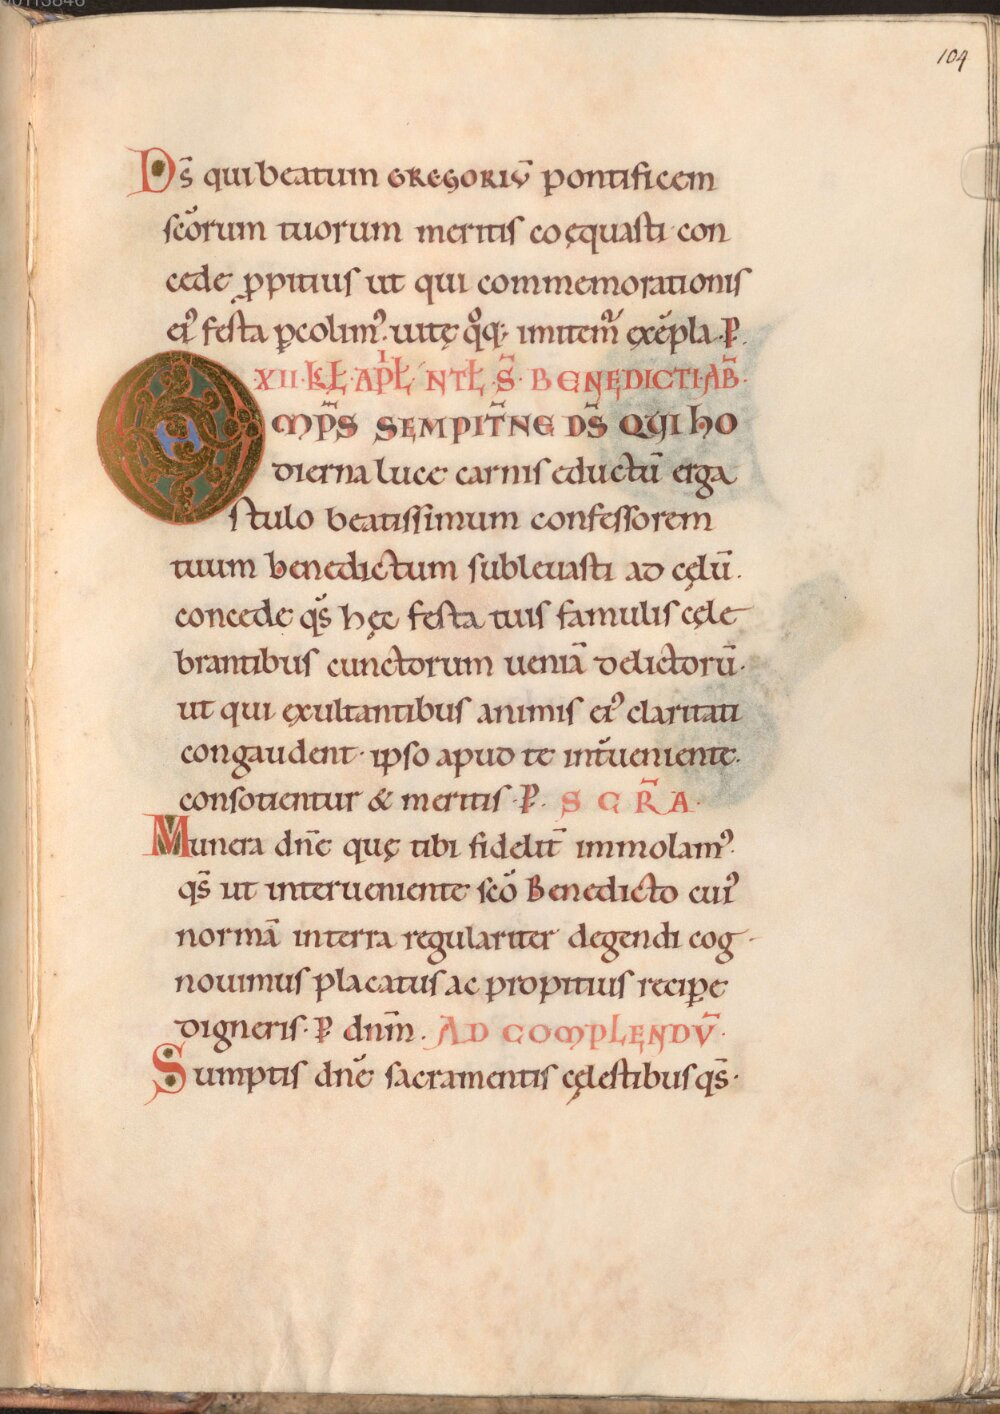 104
Ds̄ qui beatum GREGORIŪ pontificem
sc̄orum tuorum meritis coęquasti con
cede ꝓpitius ut qui commemorationis
ei᾽ festa ꝑcolim᾽. uitę qͦq; imitem᷑ exēpla. P̄.
XII. KŁ. APŁ. NTŁ. S̄. BENEDICTI AB̄.
OMP̄S SEMPIT̄NE DS̄ QUI HO
dierna luce carnis eductū erga
stulo beatissimum confessorem
tuum benedictum subleuasti ad cęlū.
concede qs̄ hęc festa tuis famulis cęle
brantibus cunctorum ueniā delictorū.
ut qui exultantibus animis ei᾽ claritati
congaudent. ipso apud te int̄ueniente.
consotientur & meritis. P̄. SCR̄A.
Munera dn̄e quę tibi fidelit̄ immolam᾽.
qs̄ ut interueniente sc̄o Benedicto cui᾽
normā interra regulariter degendi cog
nouimus placatus ac propitius reciꝑe
digneris. P̄ dn̄m. AD COMPLENDŪ.
Sumptis dn̄e sacramentis cęlestibus qs̄.